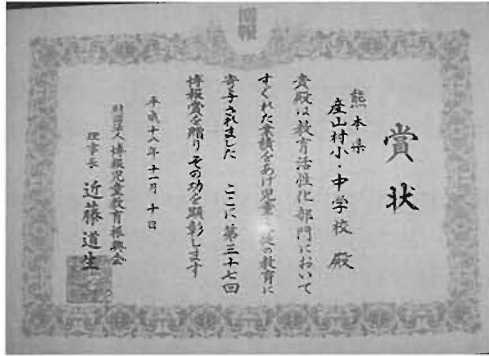 博報
賞状
熊本県
産山村小・中学校 殿
貴殿は教育活性化部門において
すぐれた業績をあげ児童生徒の教育に
寄与されました ここに第三十七回
博報賞を贈り その功を顕彰します
平成十八年十一月十日
財団法人 博報児童教育振興会
理事長 近藤道生